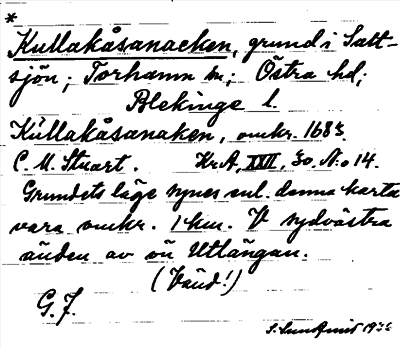 *
Kullakåsanacken, grund i Salt-
sjön; Torhamn sn; Östra hd;
Blekinge l.
Kůllakåsanaken, omkr. 1683.
C. M. Stuart. Kr.A, XXII, 30, N:o 14.
Grundets läge synes enl. denna karta
vara omkr. 1 km. V sydvästra
änden av ön Utlängan.
(Vänd!)
G. J.
S. Lundquist